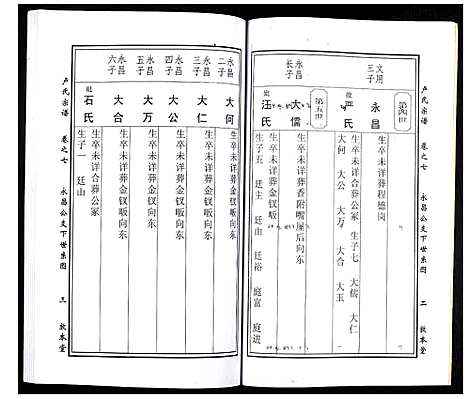 第四世
文用三子
永昌
生卒未详葬程德岗
妣
严氏
生卒未详合葬公冢 生子七 大儒 大仁
大何 大公 大万 大合 大玉
第五世
永昌长子
大儒
生卒未详葬香附嘴屋后向东
妣
汪氏
生卒未详葬金钗畈
生子五 廷主 廷山 廷裕 庭富 庭进
卢氏宗谱
卷之七
永昌公支下世系图
二
敦本堂
永昌二子
大何
生卒未详葬金钗畈向东
永昌三子
大仁
生卒未详葬金钗畈向东
永昌四子
大公
生卒未详葬金钗畈向东
永昌五子
大万
生卒未详葬金钗畈向东
永昌六子
大合
生卒未详葬金钗畈向东
妣
石氏
生卒未详合葬公冢
生子一 廷山
卢氏宗谱
卷之七
永昌公支下世系图
三
敦本堂